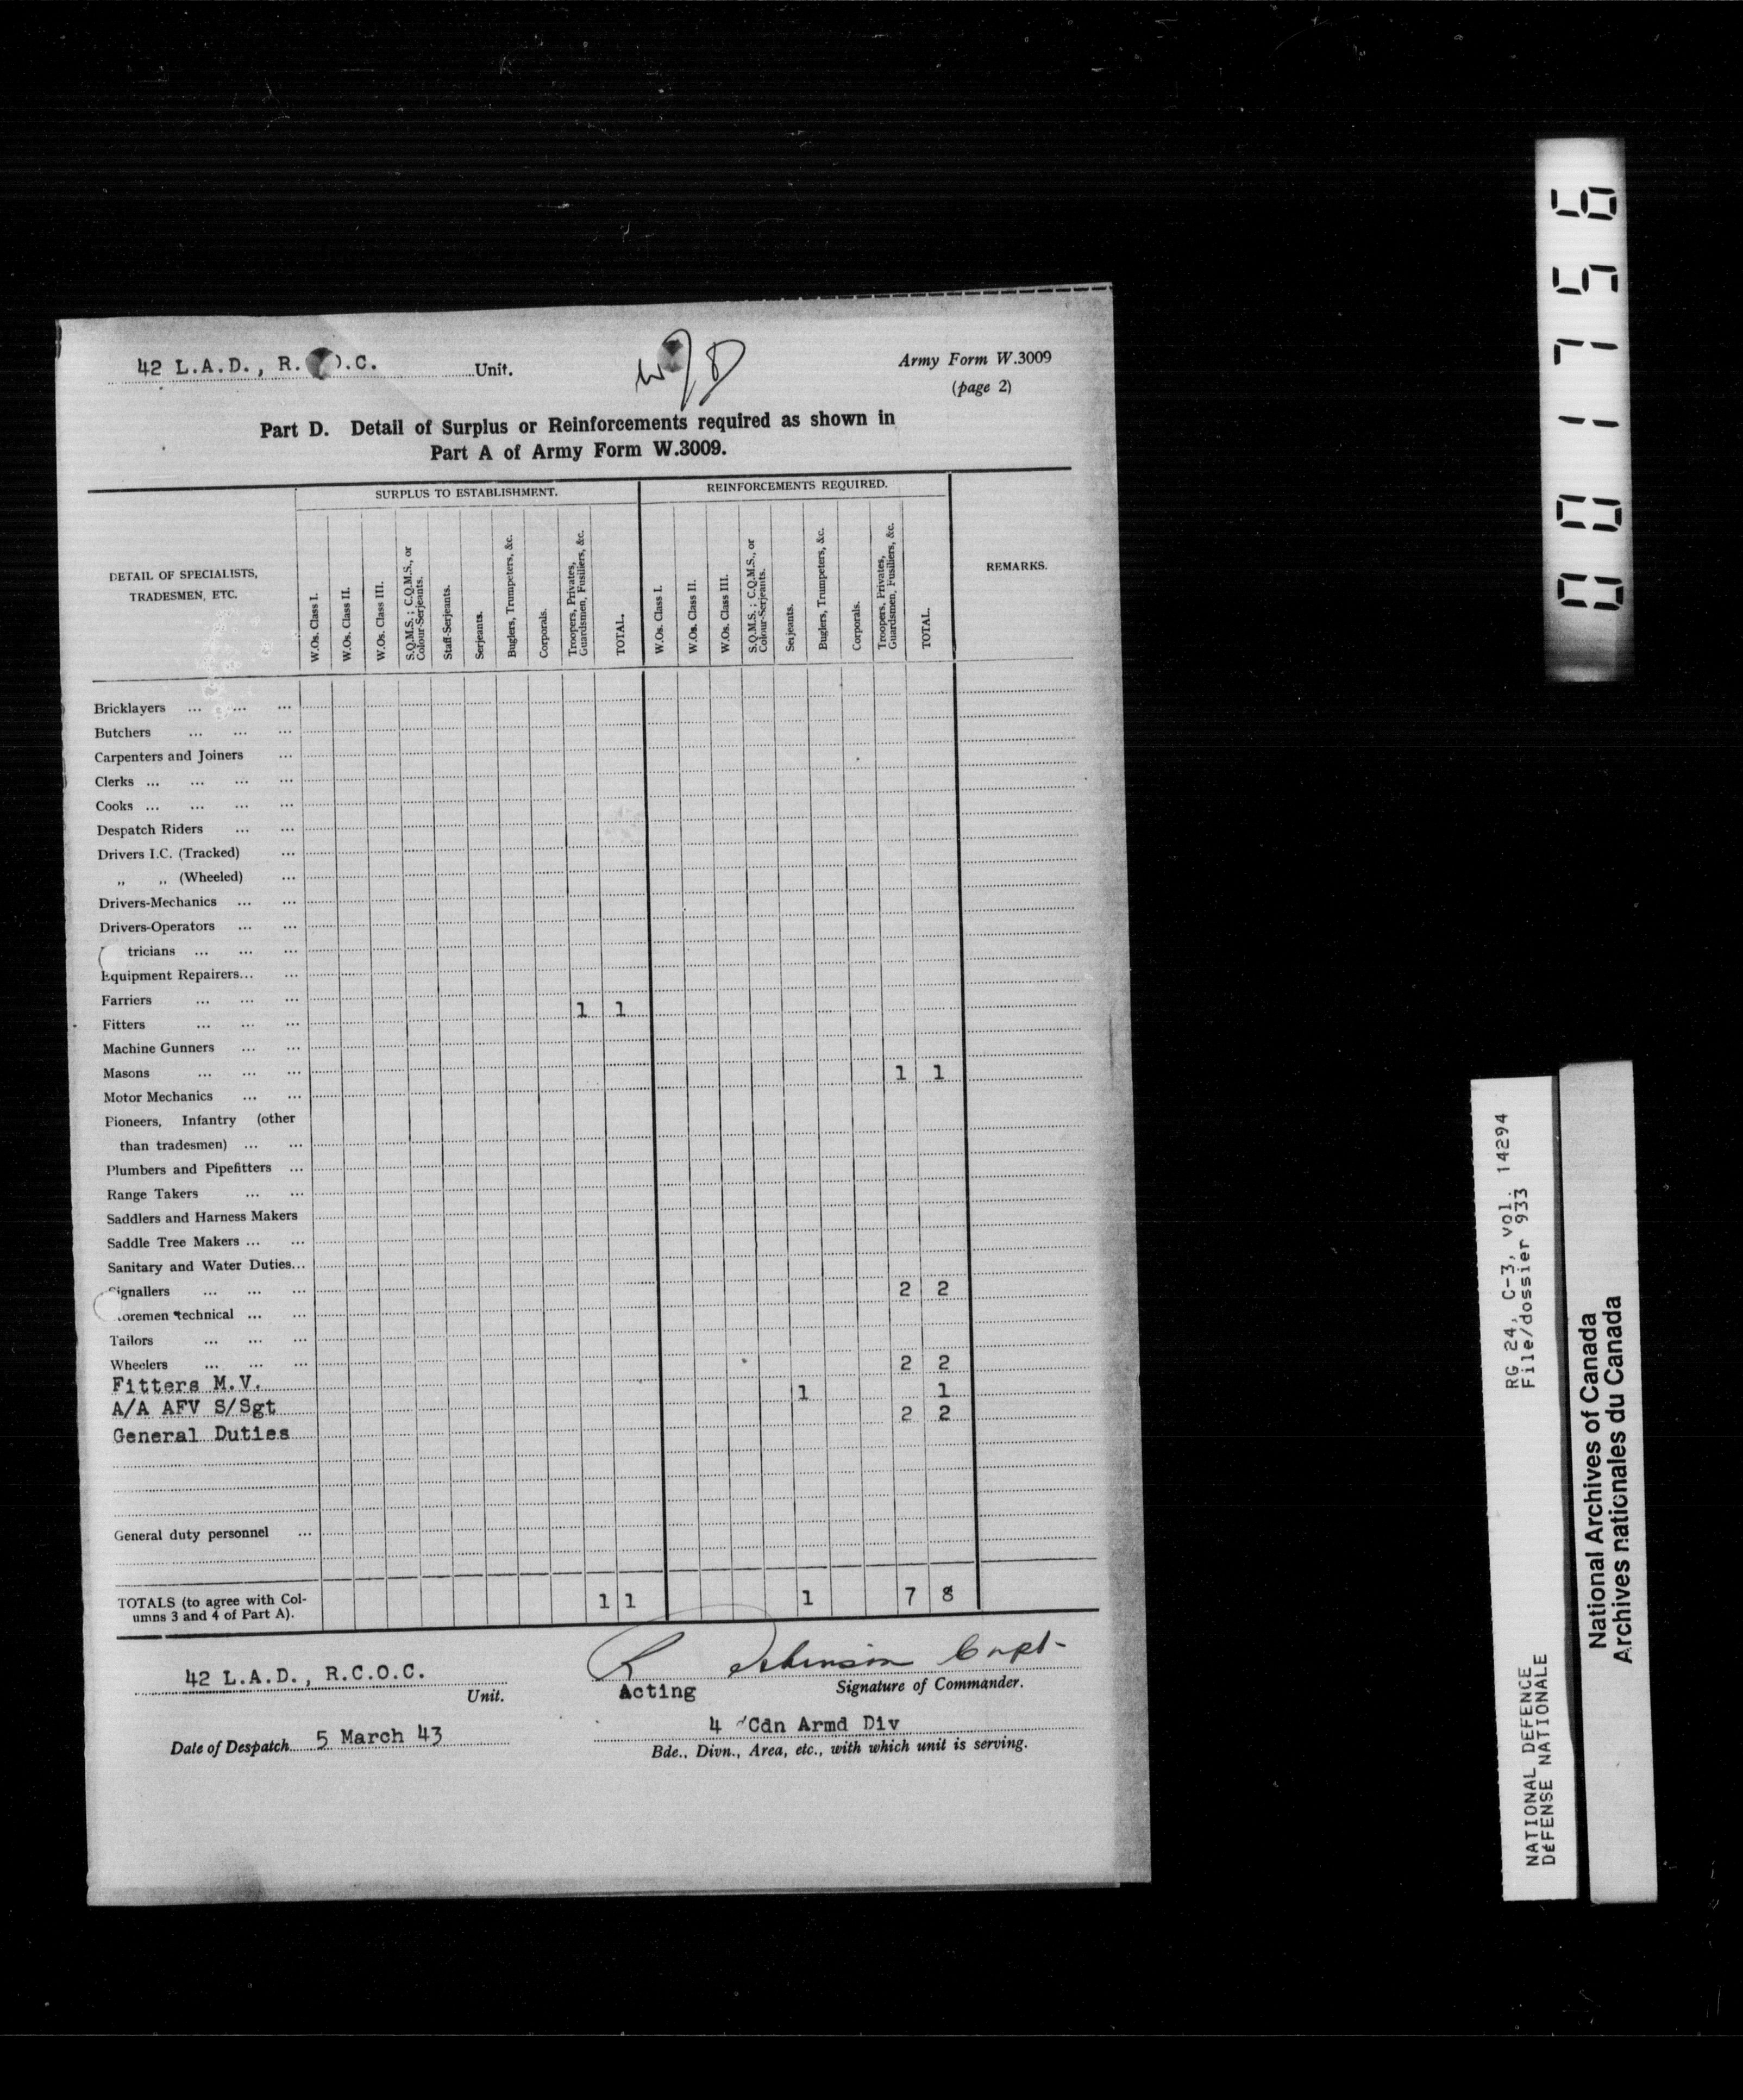 42 L.A.D., R. .O.C. Unit.
Army Form W.3009
(page 2)
Part D. Detail of Surplus or Reinforcements required as shown in
Part A of Army Form W.3009.
DETAIL OF SPECIALISTS,
TRADESMEN, ETC.
SURPLUS TO ESTABLISHMENT.
REINFORCEMENTS REQUIRED.
REMARKS.
W.Os. Class I.
W.Os. Class II.
W.Os. Class III.
S.Q.M.S.; C.Q.M.S., or
Colour-Serjeants.
Staff-Serjeants.
Serjeants.
Buglers, Trumpeters, &c.
Corporals.
Troopers, Privates,
Guardsmen, Fusiliers, &c.
TOTAL.
W.Os. Class I.
W.Os. Class II.
W.Os. Class III.
S.Q.M.S.; C.Q.M.S., or
Colour-Serjeants.
Serjeants.
Buglers, Trumpeters, &c.
Corporals.
Troopers, Privates,
Guardsmen, Fusiliers, &c.
TOTAL.
Bricklayers ... ... ...
Butchers ... ... ...
Carpenters and Joiners ...
Clerks ... ... ... ...
Cooks ... ... ... ...
Despatch Riders ... ...
Drivers I.C. (Tracked) ...
,, ,, (Wheeled) ...
Drivers-Mechanics ... ...
Drivers-Operators ... ...
tricians ... ... ...
Equipment Repairers... ...
Farriers ... ... ...
1 1
Fitters ... ... ...
Machine Gunners ... ...
Masons ... ... ...
1 1
Motor Mechanics ... ...
Pioneers, Infantry (other
than tradesmen) ... ...
Plumbers and Pipefitters ...
Range Takers ... ...
Saddlers and Harness Makers
Saddle Tree Makers ... ...
Sanitary and Water Duties...
Signallers ... ... ...
2 2
oremen technical ... ...
Tailors ... ... ...
Wheelers ... ... ...
2 2
Fitters M.V.
1 1
A/A AFV S/Sgt
2 2
General Duties
General duty personnel ...
TOTALS (to agree with Col-
umns 3 and 4 of Part A).
1 1 1 7 8
42 L.A.D., R.C.O.C.
Unit.
R Capt
Acting Signature of Commander.
Date of Despatch 5 March 43
4 Cdn Armd Div
Bde., Divn., Area, etc., with which unit is serving.
001756
RG 24, C-3, vol. 14294
File/dossier 933
NATIONAL DEFENCE
DÉFENSE NATIONALE
National Archives of Canada
Archives nationales du Canada